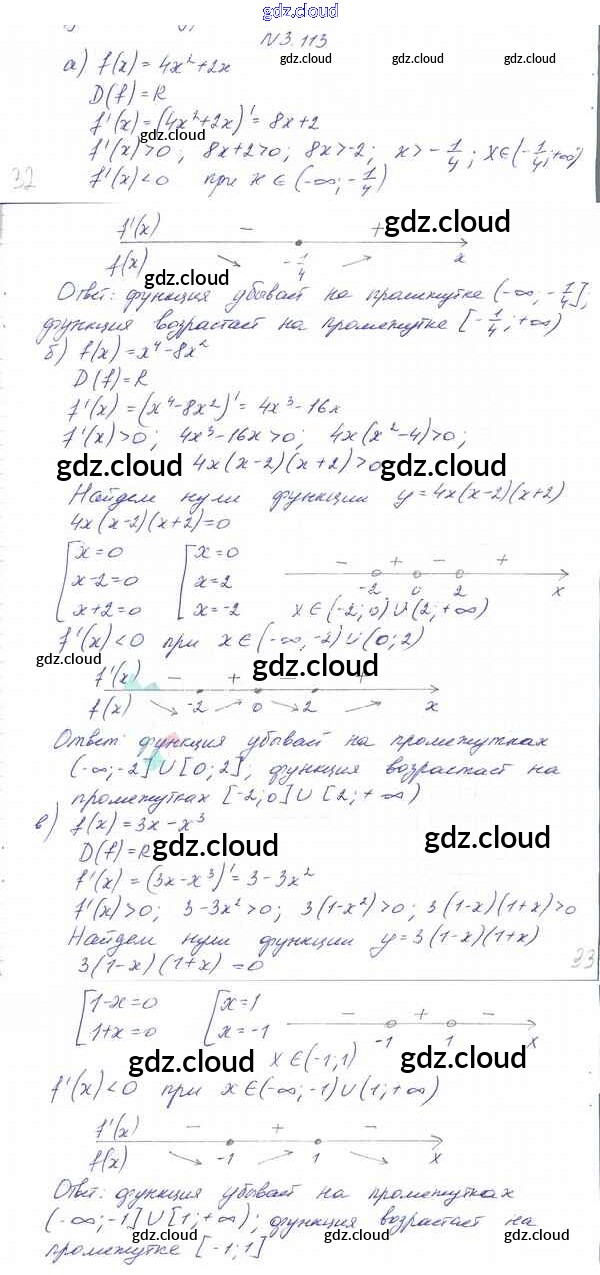 gdz.cloud
N3.113
а) f(x) = 4x²+2x
gdz.cloud gdz.cloud
D(f) = R
f'(x) = (4x²+2x)' = 8x+2
gdz.cloud
f'(x)>0; 8x+2>0; 8x>-2; x>-1/4; x∈(-1/4;+∞)
32
f'(x)<0 при x∈(-∞;-1/4)
gdz.cloud
f'(x) − +
gdz.cloud
f(x) ↘ -1/4 ↗ x
gdz.cloud
Ответ: функция убывает на промежутке (-∞;-1/4];
функция возрастает на промежутке [-1/4;+∞)
б) f(x) = x⁴-8x²
D(f) = R
f'(x) = (x⁴-8x²)' = 4x³-16x
f'(x)>0; 4x³-16x>0; 4x(x²-4)>0;
gdz.cloud 4x(x-2)(x+2)>0 gdz.cloud
Найдем нули функции y=4x(x-2)(x+2)
4x(x-2)(x+2)=0
[x=0 [x=0
x-2=0 x=2 − + − +
x+2=0 x=-2 -2 0 2 x
x∈(-2;0)∪(2;+∞)
f'(x)<0 при x∈(-∞,-2)∪(0;2)
gdz.cloud gdz.cloud gdz.cloud
f'(x) − + − +
f(x) ↘ -2 ↗ 0 ↘ 2 ↗ x
Ответ: функция убывает на промежутках
(-∞;-2]∪[0;2], функция возрастает на
промежутках [-2;0]∪[2;+∞)
в) f(x) = 3x-x³
D(f) = R gdz.cloud gdz.cloud
f'(x) = (3x-x³)' = 3-3x²
f'(x)>0; 3-3x²>0; 3(1-x²)>0; 3(1-x)(1+x)>0
Найдем нули функции y=3(1-x)(1+x)
3(1-x)(1+x)=0
33
[1-x=0 [x=1 − + −
1+x=0 x=-1 -1 1 x
gdz.cloud x∈(-1;1) gdz.cloud
f'(x)<0 при x∈(-∞;-1)∪(1;+∞)
gdz.cloud
f'(x) − + −
f(x) ↘ -1 ↗ 1 ↘ x
Ответ: функция убывает на промежутках
(-∞;-1]∪[1;+∞); функция возрастает на
промежутке [-1;1]
gdz.cloud gdz.cloud